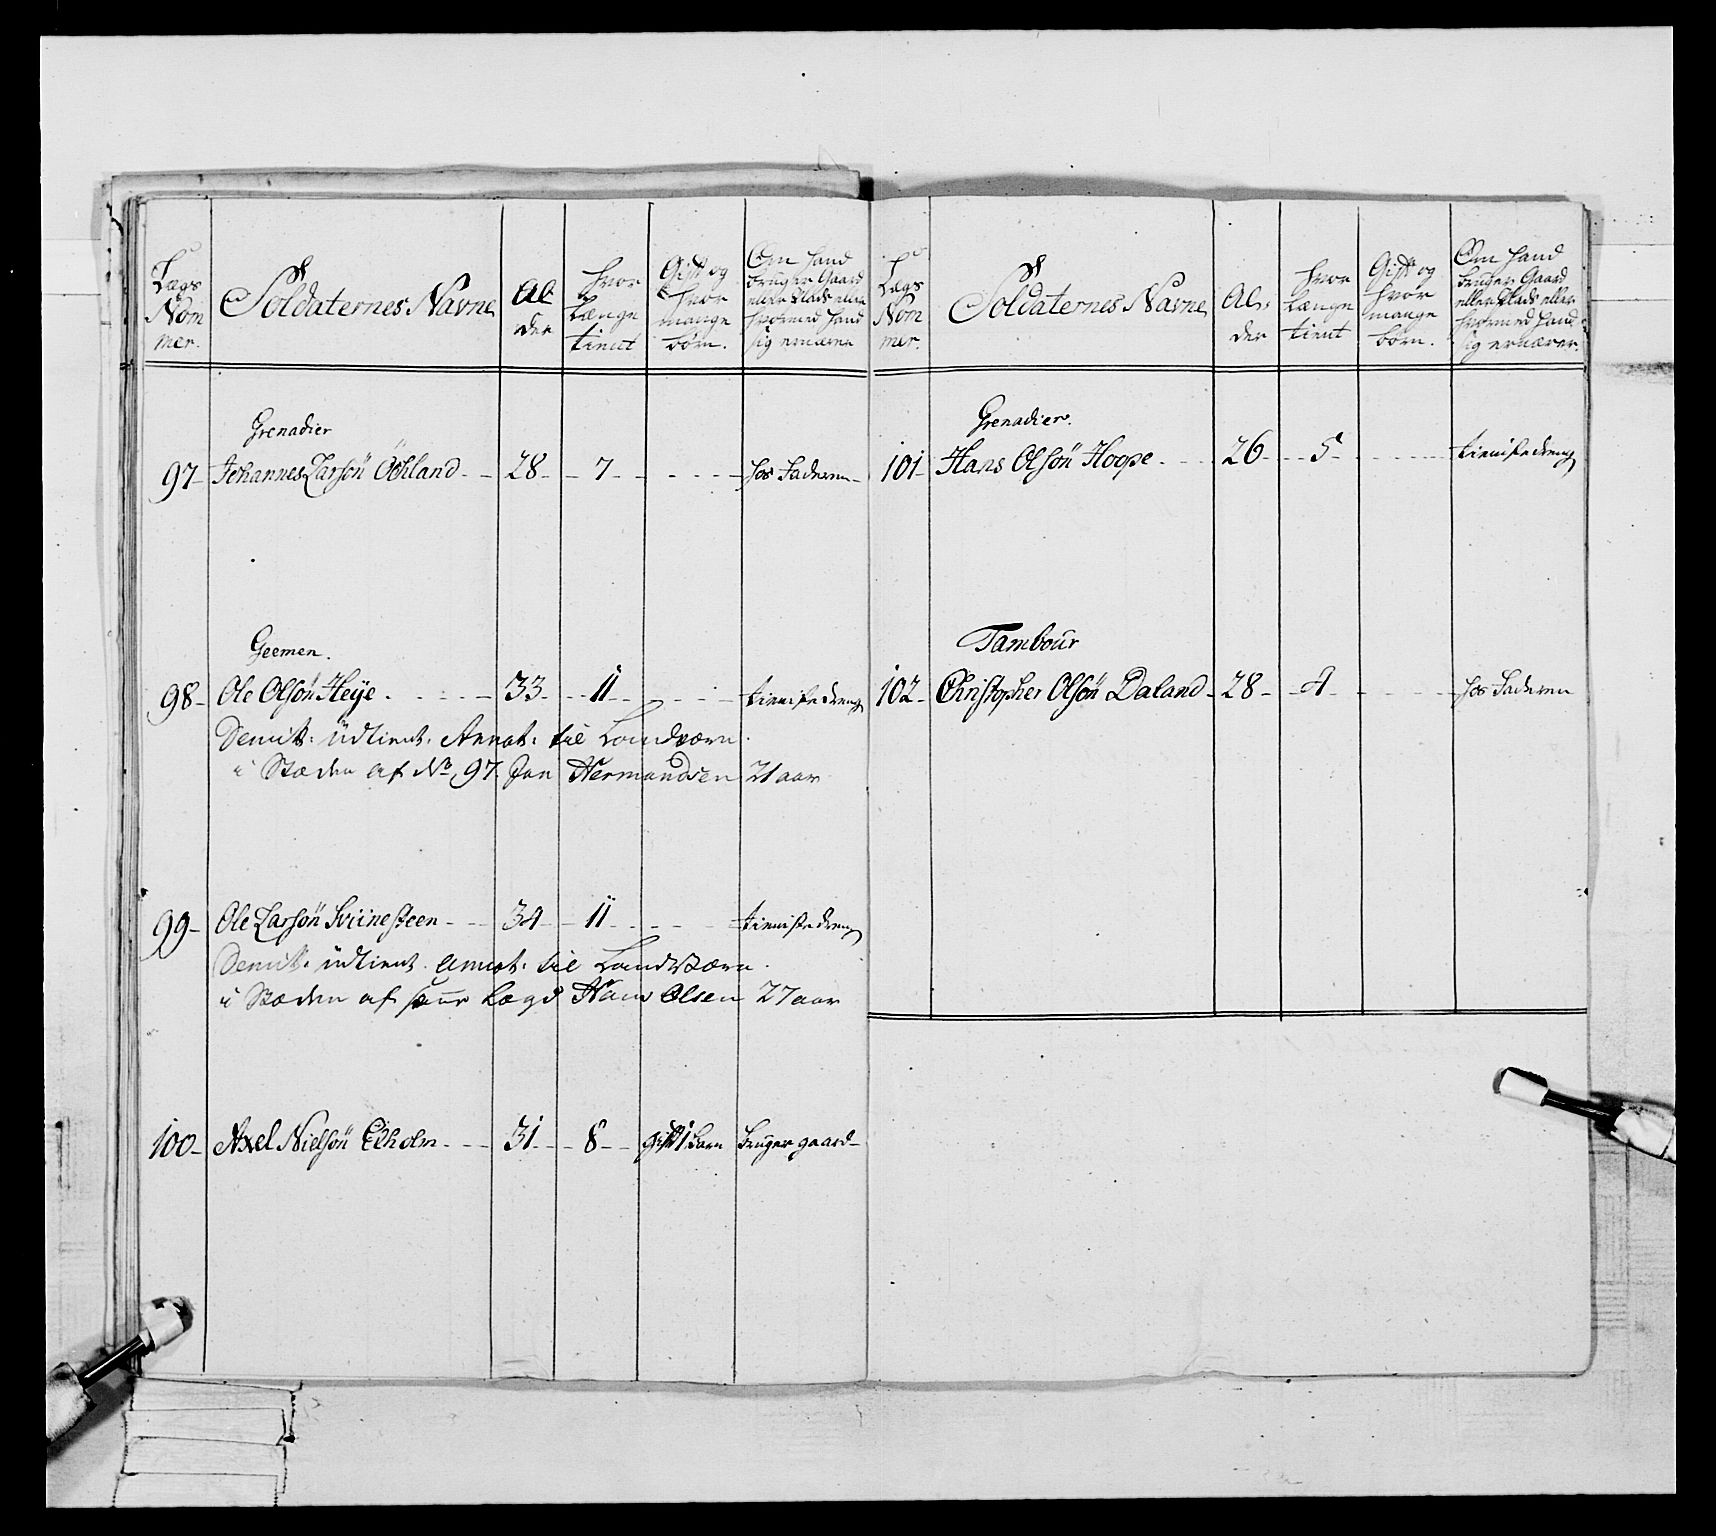 Lægs
Nom
mer.
Soldaternes Navne
Al
der
hvor
Længe
tient
Gift og
hvor
mange
børn.
Om hand
bruger Gaard
eller Plads eller
hvormed hand
sig ernærer
Grenadier
97- Johannes Larsön Öehland - - 28 - - 7 - - - - - hos Faderen -
Geemen.
98- Ole Olsön Heije - - - - - 33 - - - 11 - - - - - tienistedreng
Demitt. üdtient. Annot. til Landværn.
i Stæden af No 97. Jan Hermandsen 21 aar
99- Ole Larsön Sviinesteen - - - 34 - - 11 - - - - tienistedreng
Demitt. üdtient. annot. til Landværn.
i Stæden af samme Lægd Hans Olsen 27 aar
100- Axel Nielsön Eeholm - - - 31 - - 8 - - gift 1 barn bruger gaard -
Lægs
Nom
mer.
Soldaternes Navne
Al:
der
hvor
Længe
tient
Gift og
hvor
mange
børn.
Om hand
bruger Gaard
eller Plads eller
hvormed hand
sig ernærer.
Grenadier.
101- Hans Olsön Hoope - - - 26 - - 5 - - - - - tienistedreng
Tambour
102- Christopher Olsön Daland - 28 - - 4 - - - - - hos Faderen